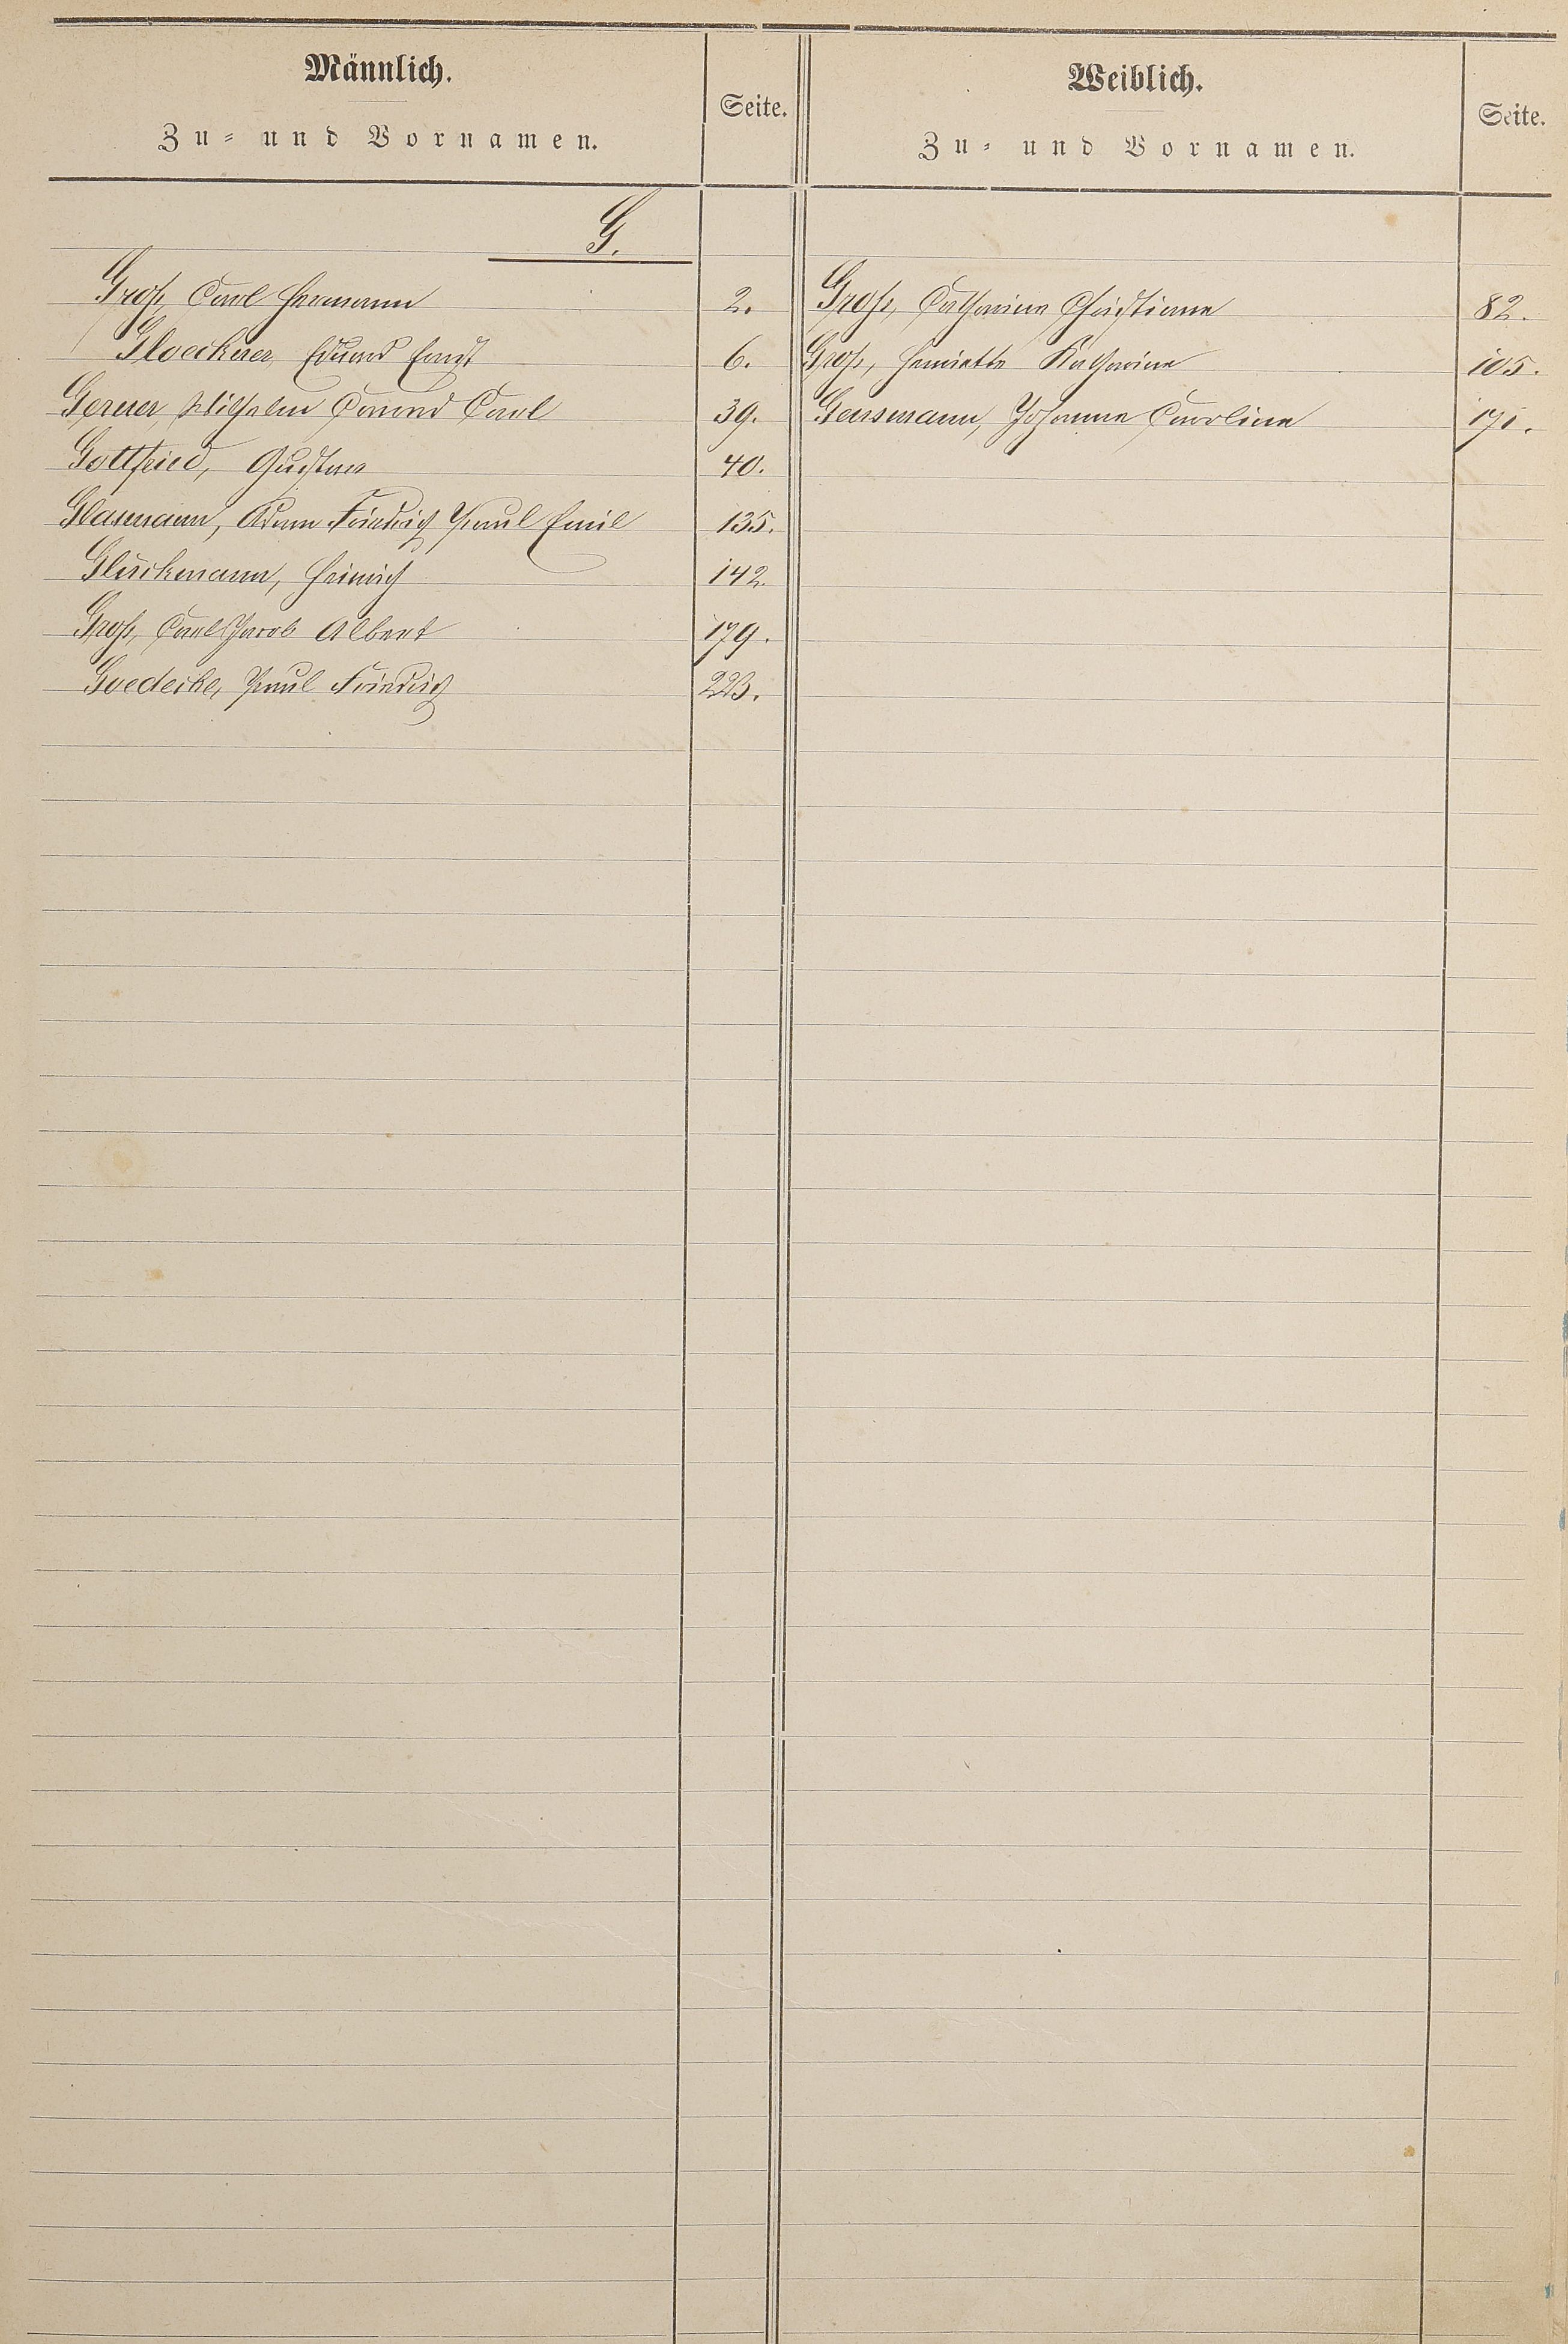 Männlich.
Zu- und Vornamen.
Seite.
Weiblich.
Zu- und Vornamen.
Seite.
G.
Groß, Carl Hermann 2.
Gloeckner, Eduard Ernst 6.
Gerner, Wilhelm Conrad Carl 39.
Gottfried, Gustav 40.
Glasmann, Adam Friedrich Paul Emil 135.
Glückmann, Heinrich 142.
Groß, Carl Jacob Albert 179.
Goedecke, Paul Friedrich 223.
Groß, Catharina Christiane 82.
Groß, Henriette Katharina 105.
Gensmann, Johanna Caroline 171.